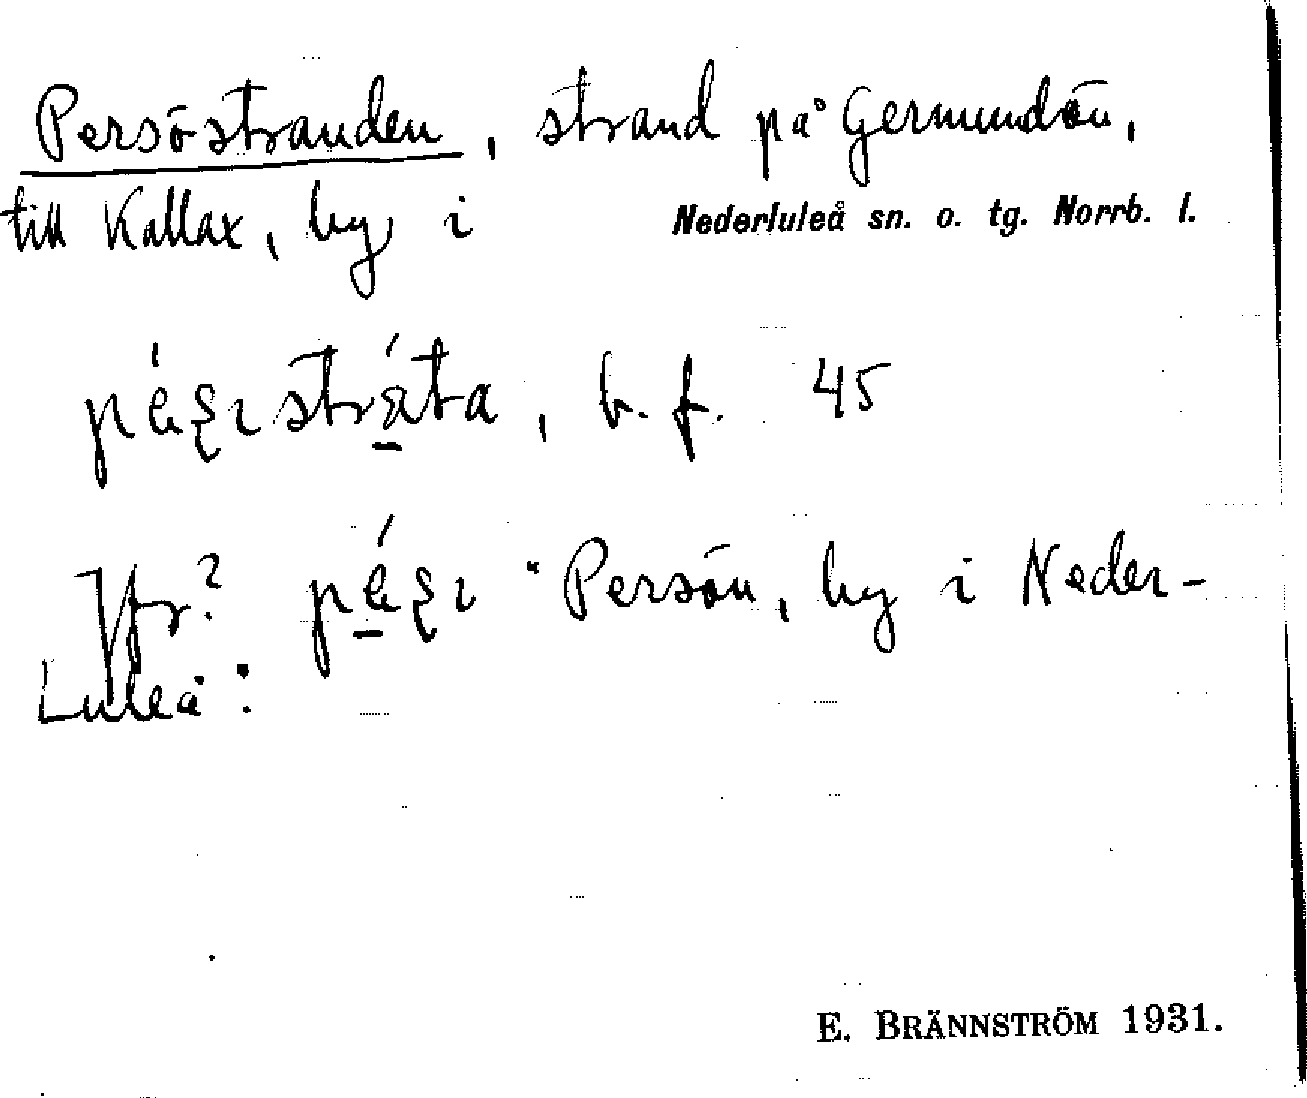 Persöstranden, strand på Germundön,
till Kallax, by i Nederluleå sn. o. tg. Norrb. l.
b. f. 45
Jfr? "Persön, by i Neder-
Luleå":
E. BRÄNNSTRÖM 1931.